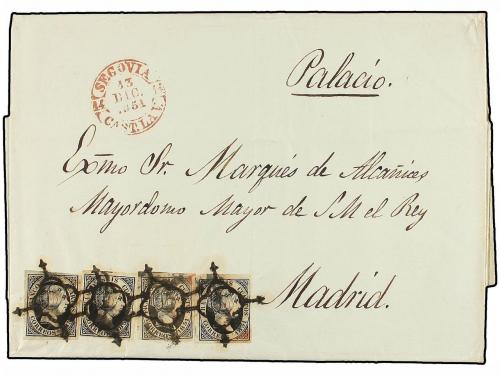 SEGOVIA
13
DIC.
1851
CAST. LA V.
Palacio.
Exmo Sr. Marqués de Alcañices
Mayordomo Mayor de S M el Rey
Madrid.